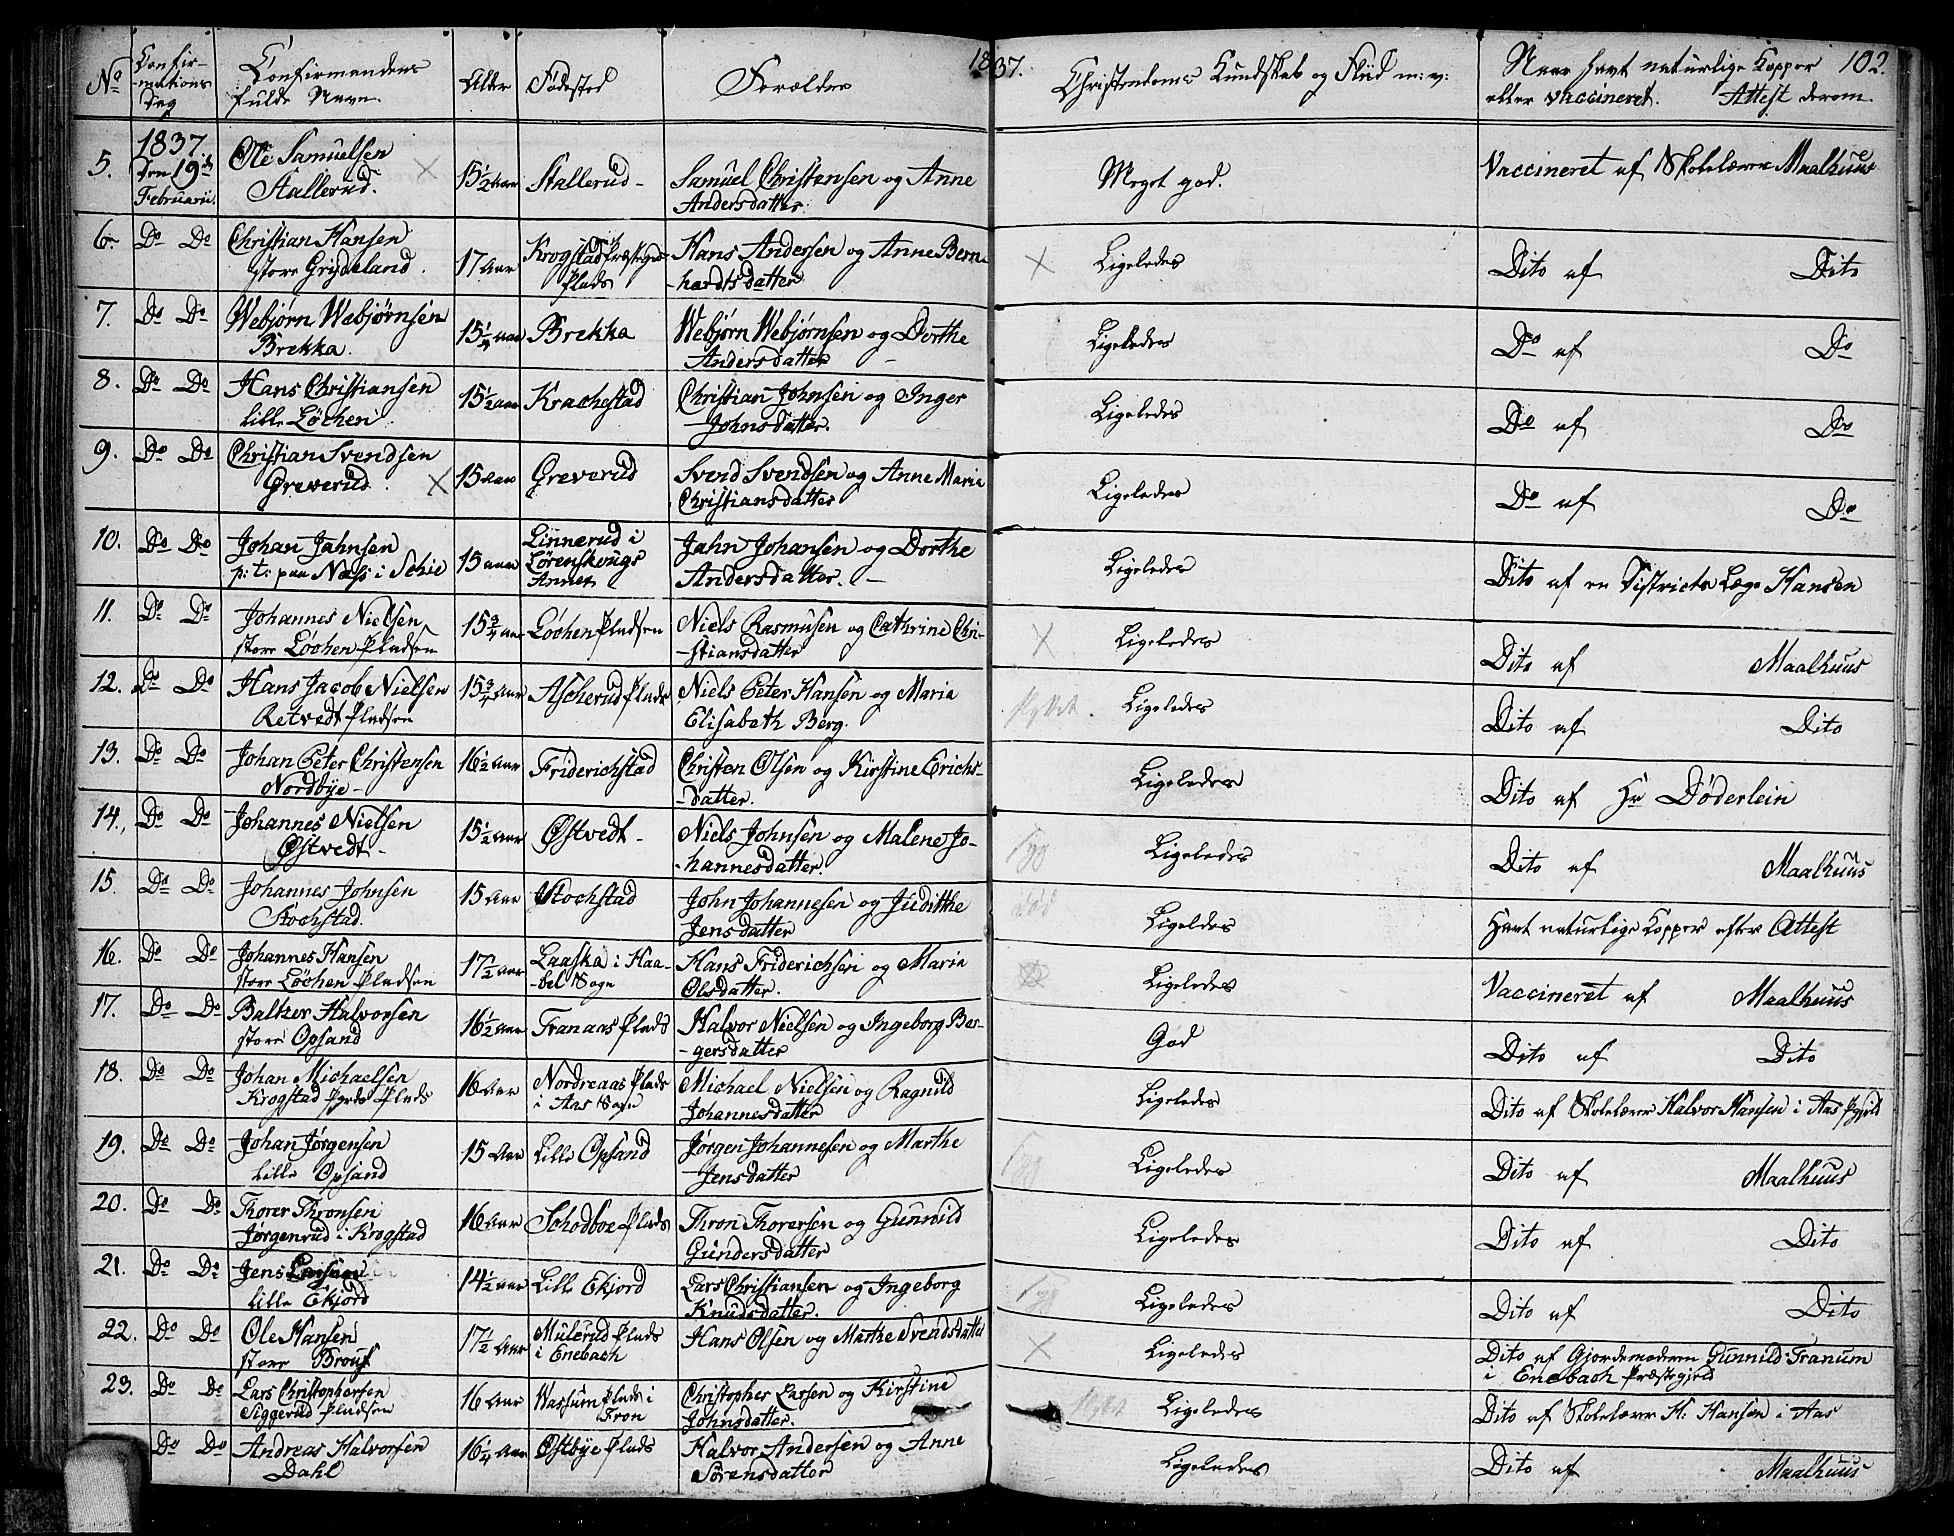 1837.
102.
No
Confir-
mations
Dag
Confirmandens
fulde Navn.
Alder
Fødested
Forældre
Christendoms Kundskab og Flid m: v:
Naar havt naturlige Kopper
eller vaccineret. Attest derom.
5. 1837 Den 19de Februarii. Ole Samuelsen Stallerud. 15 1/2 Aar Stallerud - Samuel Christensen og Anne Andersdatter Meget god. Vaccineret af Skolelærer Maalhuus
6. Do Do Christian Hansen store Grydeland. 17 Aar Krogstad Plads Hans Andersen og Anne Bern-hardtsdatter Ligeledes Dito af Dito
7. Do Do Webjørn Webjørnsen Brekka. 15 1/4 Aar Brekka Webjørn Webjørnsen og Dorthe Andersdatter - Ligeledes Do af Do
8. Do Do Hans Christiansen lille Løchen 15 1/2 Aar Krachestad Christian Johnsen og Inger Johnsdatter. Ligeledes Do af Do
9. Do Do Christian Svendsen Greverud. 15 Aar Greverud Svend Svendsen og Anne Maria Christiansdatter Ligeledes Do af Do
10. Do Do Johan Jahnsen p: t: paa Næss i Schie 15 Aar Linnerud i Lørenskougs Annex Jahn Johansen og Dorthe Andersdatter. - Ligeledes Dito af en Districts Læge Hansen
11. Do Do Johannes Nielsen store Løchen Pladsen 15 3/4 Aar Løchen Pladsen Niels Rasmusen og Cathrine Chri-stiansdatter Ligeledes Dito af Maalhuus
12. Do Do Hans Jacob Nielsen Retvedt Pladsen 15 3/4 Aar Ascherud Plads Niels Peter Hansen og Maria Elisabeth Berg. flyttet. Ligeledes Dito af Dito
13. Do Do Johan Peter Christensen Nordbye - 16 1/2 Aar Friderichstad Christen Olsen og Kirstine Erichs-datter. Ligeledes Dito af Hr Døderlein
14. Do Do Johannes Nielsen Østvedt - 15 1/2 Aar Østvedt - Niels Johnsen og Malene Jo-hannesdatter. Ligeledes Dito af Maalhuus
15. Do Do Johannes Johnsen Stochstad. 15 Aar Stochstad John Johannesen og Juditthe Jensdatter død Ligeldes Havt naturlige Kopper efter Attest
16. Do Do Johannes Hansen store Løchen Pladsen 17 1/2 Aar Laaska i Haa-bel Sogn Hans Friderichsen og Maria Olsdatter. Ligeledes Vaccineret af Maalhuus
17. Do Do Balzer Halvorsen store Opsand 16 1/2 Aar Tranaas Plads Halvor Nielsen og Ingeborg Ber-gersdatter God Dito af Dito
18. Do Do Johan Michaelsen Krogstad Plads 16 Aar Nordreaas Plads i Aas Sogn Michael Nielsen og Ragnild Johannesdatter Ligeledes Dito af Skolelærer Halvor Hansen i Aas Pgjeld
19. Do Do Johan Jørgensen Lille Opsand 15 Aar Lille Opsand Jørgen Johannesen og Marthe Jensdatter Ligeledes Dito af Maalhuus
20. Do Do Thorer Thronsen Jørgenrud i Krogstad 16 Aar Schodboe Plads Thron Thorersen og Gunnild Gundersdatter Ligeledes Dito af Dito
21. Do Do Jens Larsen lille Ekjord 14 1/2 Aar Lille Ekjord Lars Christiansen og Ingeborg Knudsdatter. Ligeledes Dito af Dito
22. Do Do Ole Hansen store Brouf 17 1/2 Aar Mulerud Plads i Enebach Hans Olsen og Marthe Svendsdatter Ligeledes Dito af Gjordemoderen Gunnild Tranum i Enebach Præstegjeld
23. Do Do Lars Christophersen Siggerud Pladsen 16 Aar Wassum Plads i Fron Christopher Larsen og Kirstine Johnsdatter. Ligeledes Dito af Skolelærer H: Hansen i Aas
Do Do Andreas Halvorsen Dahl 16 1/4 Aar Østbye Plads Halvor Andersen og Anne Sørensdatter Ligeledes Dito af Maalhuus